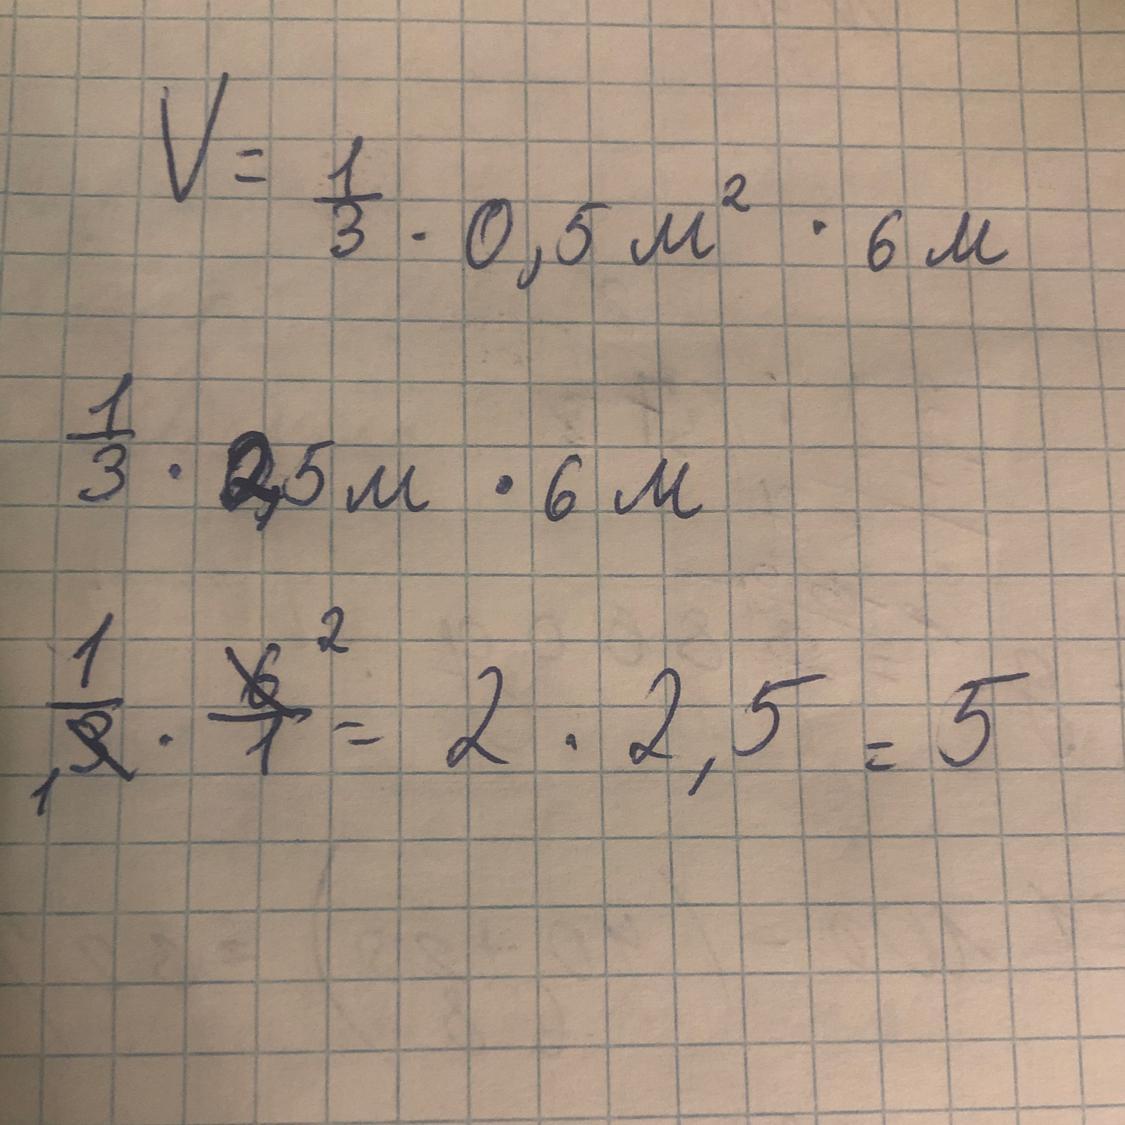 V = 1/3 · 0,5 м² · 6 м
1/3 · 2,5 м · 6 м
1/3 · 6/1 = 2 · 2,5 = 5